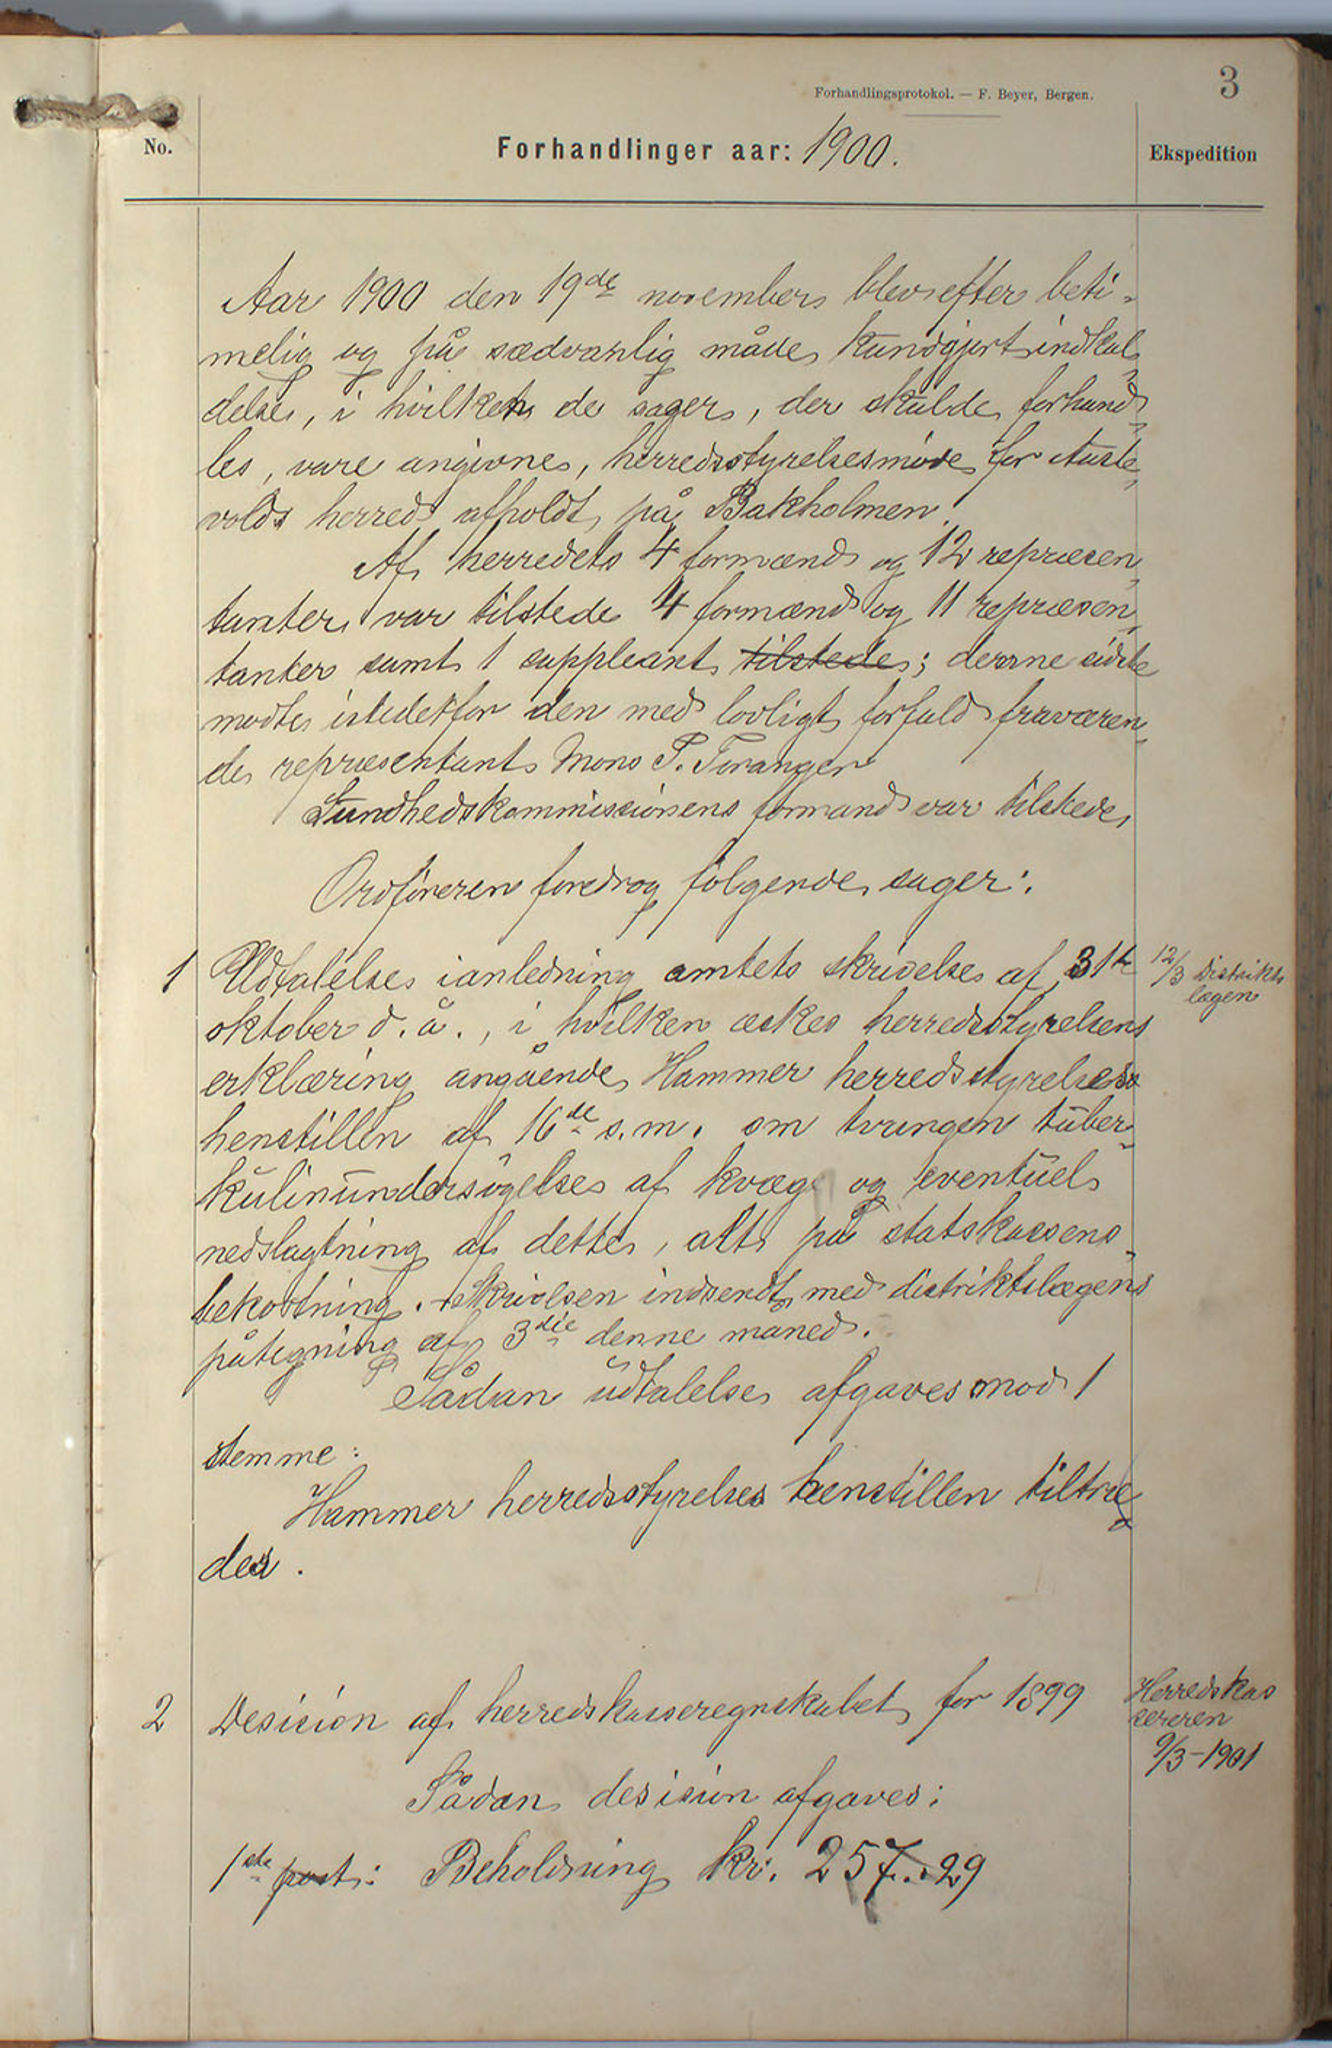 Forhandlingsprotokol. — F. Beyer, Bergen.
3
No.
Forhandlinger aar: 1900.
Ekspedition
Aar 1900 den 19de november blev efter beti-
melig og på sædvanlig måde kundgjort indkal-
delse, i hvilken de sager, der skulde forhand-
les, vare angivne, herredsstyrelsesmøde for Auste-
volds herred afholdt på Bakholmen.
Af herredets 4 formænd og 12 repræsen-
tanter var tilstede 4 formænd og 11 repræsen-
tanter samt 1 suppleant tilstede; denne sidste
mødte istedetfor den med lovligt forfald fraværen-
de repræsentant Mons P. Torangen
Sundhedskommissionens formand var tilstede,
Ordføreren foredrog følgende sager:
1 Udtalelse ianledning amtets skrivelse af 31te
12/3 Distrikts
lægen
oktober d. å., i hvilken æskes herredsstyrelsens
erklæring angående Hammer herredsstyrelses
henstillen af 16de s.m. om tvungen tuber-
kulinundersøgelse af kvæg og eventuel
nedslagtning af dette, alt på statskassens
bekostning. Skrivelsen indsendt med distriktslægens
påtegning af 3die denne måned.
Sådan udtalelse afgaves mod 1
stemme:
Hammer herredsstyrelses henstillen tiltræ-
des.
2 Desision af herredskasseregnskabet for 1899
Herredskas
sereren
9/3-1901
Sådan desision afgaves:
1ste post: Beholdning kr. 257.29